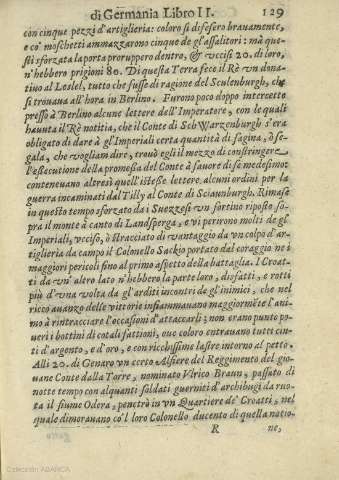 di Germania Libro II. 129
con cinque pezzi d'artiglieria: coloro si difesero brauamente,
e co' moschetti ammazzarono cinque de gl'assalitori: mà que-
sti sforzata la porta proruppero dentro, & vccisi 20. di loro,
n'hebbero prigioni 80. Di questa Terra fece il Rè vn dona-
tiuo al Leslel, tutto che fusse di ragione del Sculenburgh, che
si trouaua all'hora in Berlino. Furono poco doppo intercette
presso à Berlino alcune lettere dell'Imperatore, con le quali
hauuta il Rè notitia, che il Conte di SchWarzenburgh s'era
obligato di dare à gl'Imperiali certa quantità di fagina, ò se-
gala, che vogliam dire, trouò egli il mezo di constringere
l'essecutione della promessa del Conte à fauore di se medesimo:
conteneuano altresì quell'istesse lettere alcuni ordini per la
guerra incaminati dal Tilly al Conte di Sciaunburgh. Rimase
in questo tempo sforzato da i Suezzesi vn fortino riposto so-
pra il monte à canto di Landsperga, e vi perirono molti de gl'
Imperiali, vcciso, ò stracciato di vantaggio da vn colpo d'ar-
tiglieria da campo il Colonello Sackio portato dal coraggio ne i
maggiori pericoli fino al primo aspetto della battaglia. I Croat-
ti da vn'altro lato n'hebbero la parte loro, disfatti, e rotti
più d'vna volta da gl'arditi incontri de gl'inimici, che nel
ricco auanzo delle vittorie infiammauano maggiormẽte l'ani-
mo à rintracciare l'occasioni d'attaccarli; non erano punto po-
ueri i bottini di cotali fattioni, oue coloro entrauano tutti cin-
ti d'argento, e d'oro, e con ricchissime lastre intorno al petto.
Alli 20. di Genaro vn certo Alfiere del Reggimento del gio-
uane Conte dalla Torre, nominato Vlrico Braun, passato di
notte tempo con alquanti soldati guerniti d'archibugi da ruo-
ta il fiume Odera, penetrò in vn Quartiere de' Croatti, nel
quale dimorauano co'l loro Colonello ducento di quella natio-
R ne,
Colección ABANCA